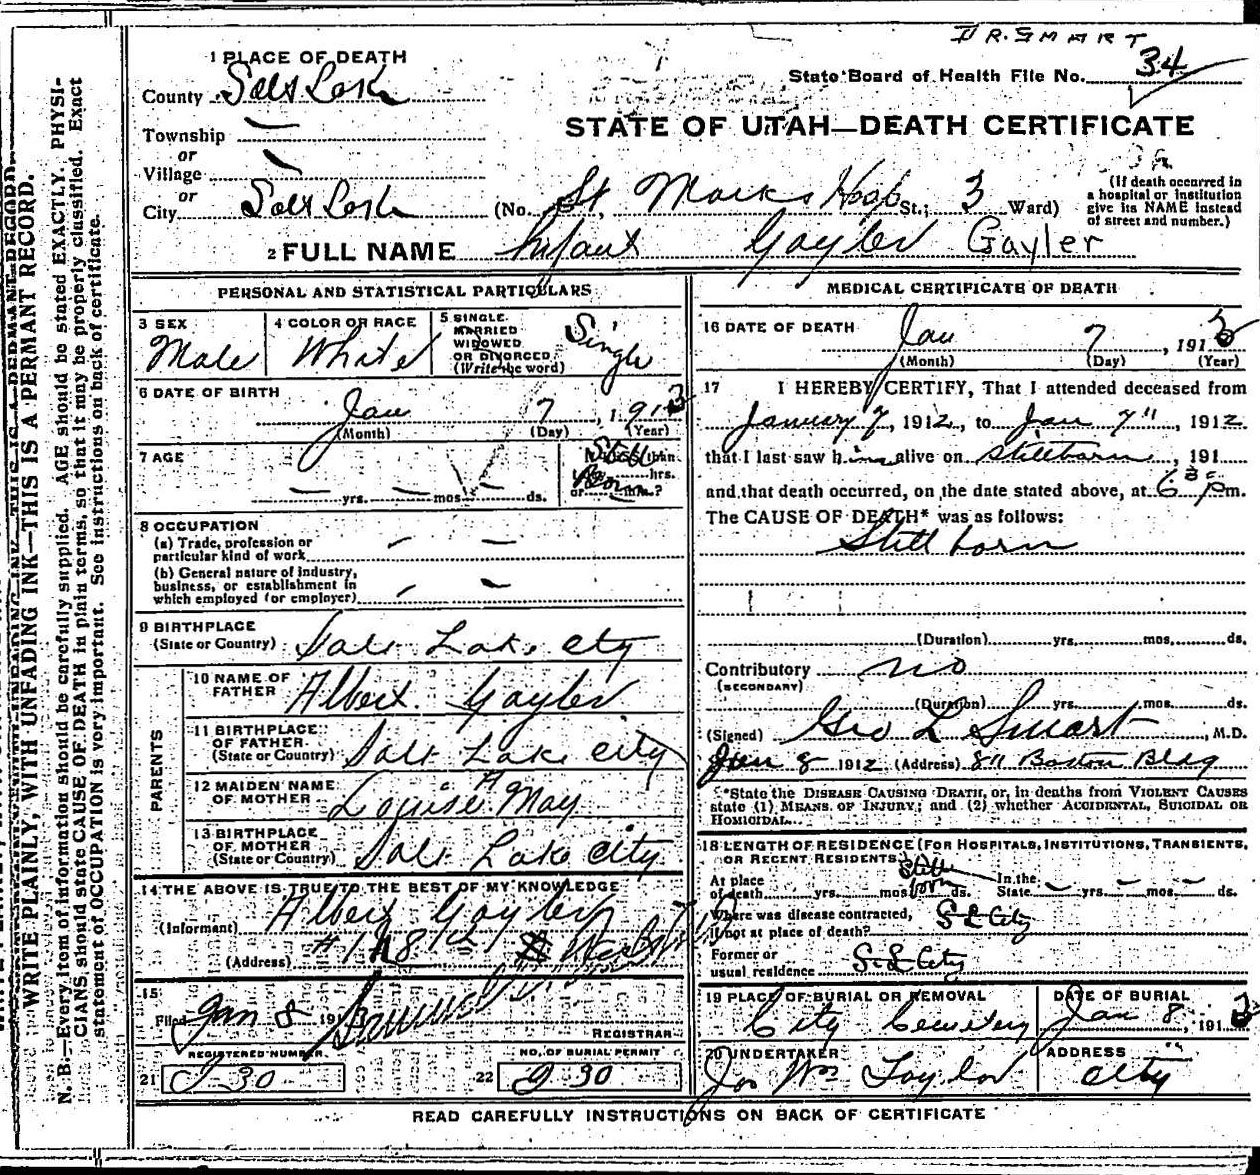 DR. SMART
1 PLACE OF DEATH
State Board of Health File No. 34
County Salt Lake
STATE OF UTAH—DEATH CERTIFICATE
Township —
or
Village —
or
City Salt Lake
(No. St. Marks Hosp St.; 3 Ward)
(If death occurred in
a hospital or institution
give its NAME instead
of street and number.)
2 FULL NAME Infant Gayler Gayler
PERSONAL AND STATISTICAL PARTICULARS
3 SEX
Male
4 COLOR OR RACE
White
5 SINGLE
MARRIED
WIDOWED
OR DIVORCED
(Write the word)
Single
6 DATE OF BIRTH
Jan 7, 1913
(Month) (Day) (Year)
7 AGE
— yrs. — mos. — ds.
Still
Born
hrs.
or min.?
8 OCCUPATION
(a) Trade, profession or
particular kind of work — —
(b) General nature of industry,
business, or establishment in
which employed (or employer) — —
9 BIRTHPLACE
(State or Country) Salt Lake City
PARENTS
10 NAME OF
FATHER Albert Gayler
11 BIRTHPLACE
OF FATHER
(State or Country) Salt Lake City
12 MAIDEN NAME
OF MOTHER Louise A May
13 BIRTHPLACE
OF MOTHER
(State or Country) Salt Lake City
14 THE ABOVE IS TRUE TO THE BEST OF MY KNOWLEDGE
(Informant) Albert Gayler
(Address)
15
Filed Jan 8 191
REGISTRAR
REGISTERED NUMBER
21 J 30
NO. OF BURIAL PERMIT
22 J 30
MEDICAL CERTIFICATE OF DEATH
16 DATE OF DEATH
Jan 7, 1913
(Month) (Day) (Year)
17 I HEREBY CERTIFY, That I attended deceased from
January 7, 1912, to Jan 7", 1912
that I last saw him alive on stillborn, 191
and that death occurred, on the date stated above, at 6 35 pm.
The CAUSE OF DEATH* was as follows:
Still born
(Duration) yrs. mos. ds.
Contributory no
(SECONDARY)
(Duration) yrs. mos. ds.
(Signed) Geo L Smart, M.D.
Jan 8 1912 (Address) 811 Boston Bldg
*State the DISEASE CAUSING DEATH, or, in deaths from VIOLENT CAUSES
state (1) MEANS OF INJURY; and (2) whether ACCIDENTAL, SUICIDAL OR
HOMICIDAL.
18 LENGTH OF RESIDENCE (FOR HOSPITALS, INSTITUTIONS, TRANSIENTS,
OR RECENT RESIDENTS)
At place
of death yrs. mos. Still born ds. In the
State — yrs. — mos. — ds.
Where was disease contracted,
if not at place of death? S L City
Former or
usual residence S. L City
19 PLACE OF BURIAL OR REMOVAL
City Cemetery
DATE OF BURIAL
Jan 8, 1913
20 UNDERTAKER
Jos Wm Taylor
ADDRESS
City
READ CAREFULLY INSTRUCTIONS ON BACK OF CERTIFICATE
WRITE PLAINLY, WITH UNFADING INK—THIS IS A PERMANT RECORD.
N. B.—Every item of information should be carefully supplied. AGE should be stated EXACTLY. PHYSI-
CIANS should state CAUSE OF DEATH in plain terms, so that it may be properly classified. Exact
statement of OCCUPATION is very important. See instructions on back of certificate.